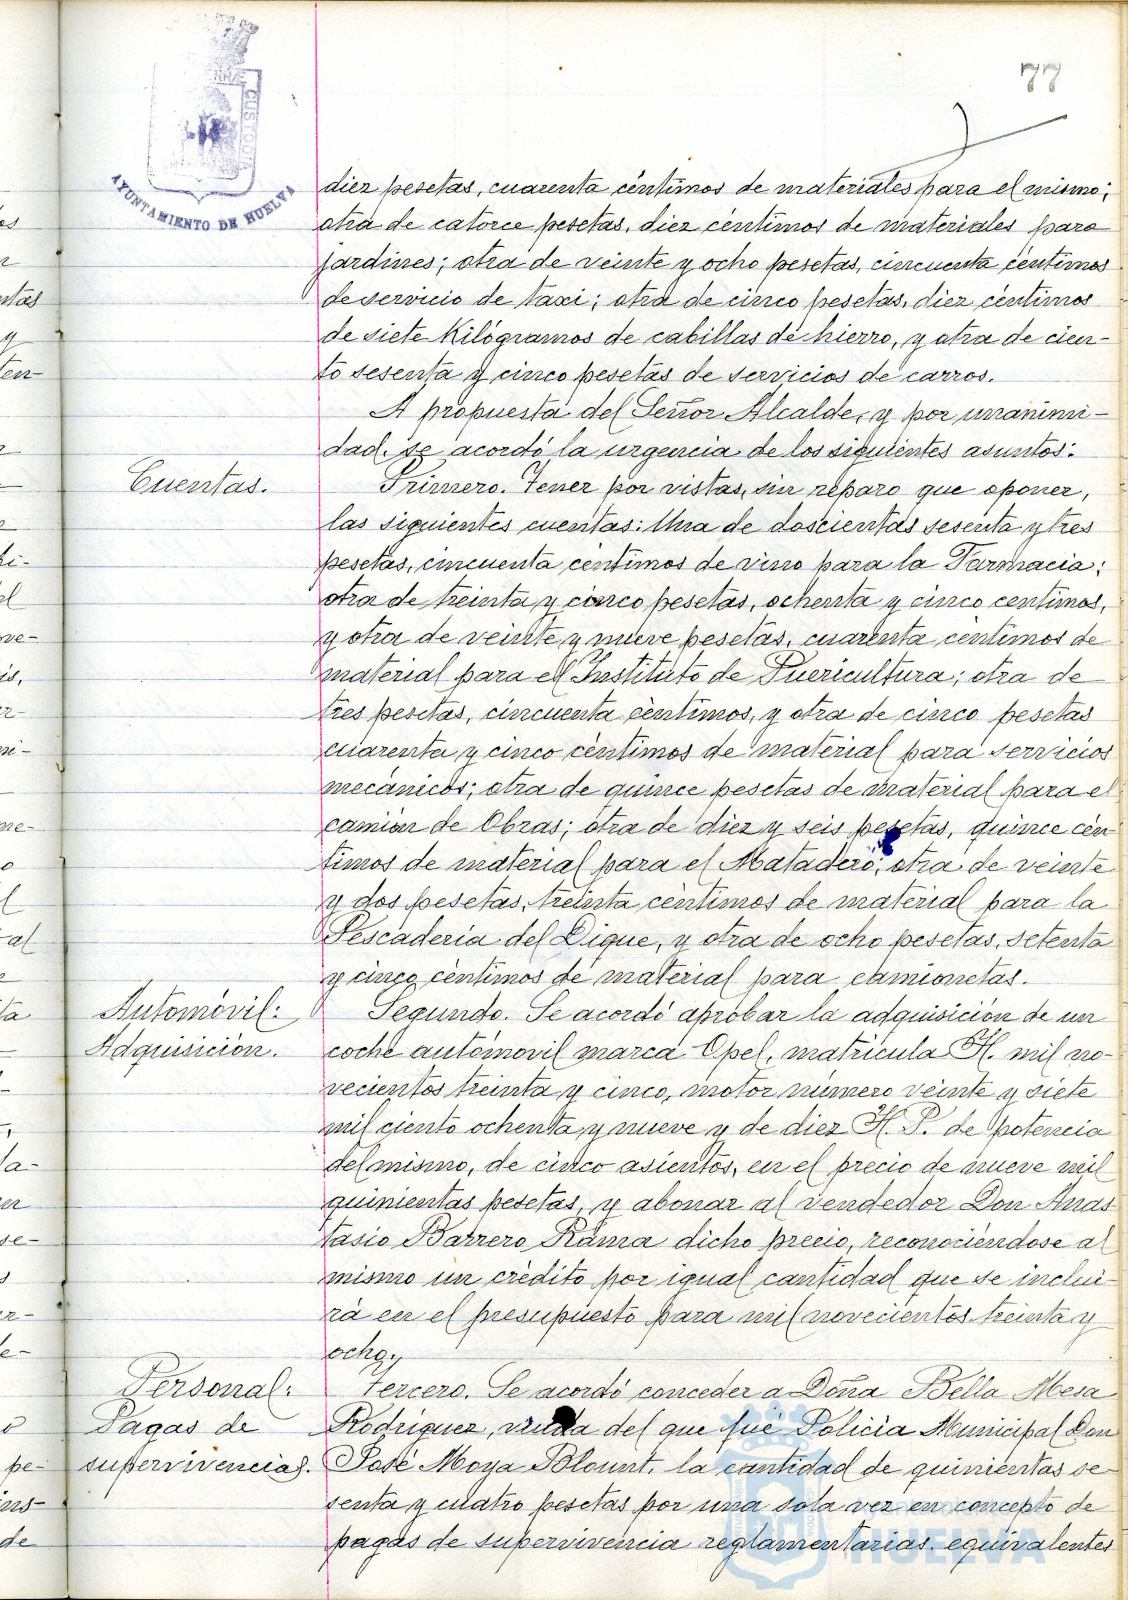 77
AYUNTAMIENTO DE HUELVA
diez pesetas, cuarenta céntimos de materiales para el mismo;
otra de catorce pesetas, diez céntimos de materiales para
jardines; otra de veinte y ocho pesetas, cincuenta céntimos
de servicio de taxi; otra de cinco pesetas, diez céntimos
de siete Kilógramos de cabillas de hierro, y otra de cien-
to sesenta y cinco pesetas de servicios de carros.
A propuesta del Señor Alcalde, y por unanimi-
dad, se acordó la urgencia de los siguientes asuntos:
Cuentas.
Primero. Tener por vistas, sin reparo que oponer,
las siguientes cuentas: Una de doscientas sesenta y tres
pesetas, cincuenta céntimos de vino para la Farmacia;
otra de treinta y cinco pesetas, ochenta y cinco centimos,
y otra de veinte y nueve pesetas, cuarenta céntimos de
material para el Instituto de Puericultura; otra de
tres pesetas, cincuenta céntimos, y otra de cinco pesetas
cuarenta y cinco céntimos de material para servicios
mecánicos; otra de quince pesetas de material para el
camión de Obras; otra de diez y seis pesetas, quince cén-
timos de material para el Matadero; otra de veinte
y dos pesetas, treinta céntimos de material para la
Pescadería del Dique, y otra de ocho pesetas, setenta
y cinco céntimos de material para camionetas.
Automóvil:
Adquisición.
Segundo. Se acordó aprobar la adquisición de un
coche automovil marca Opel, matrícula H. mil no-
vecientos treinta y cinco, motor número veinte y siete
mil ciento ochenta y nueve y de diez H. P. de potencia
del mismo, de cinco asientos, en el precio de nueve mil
quinientas pesetas, y abonar al vendedor Don Anas
tasio Barrero Rama dicho precio, reconociéndose al
mismo un crédito por igual cantidad que se inclui-
rá en el presupuesto para mil novecientos treinta y
ocho.
Personal:
Pagas de
supervivencias.
Tercero. Se acordó conceder a Doña Bella Mesa
Rodríguez, viuda del que fué Policía Municipal Don
José Moya Blount, la cantidad de quinientas se-
senta y cuatro pesetas por una sola vez en concepto de
pagas de supervivencia reglamentarias, equivalentes
HUELVA